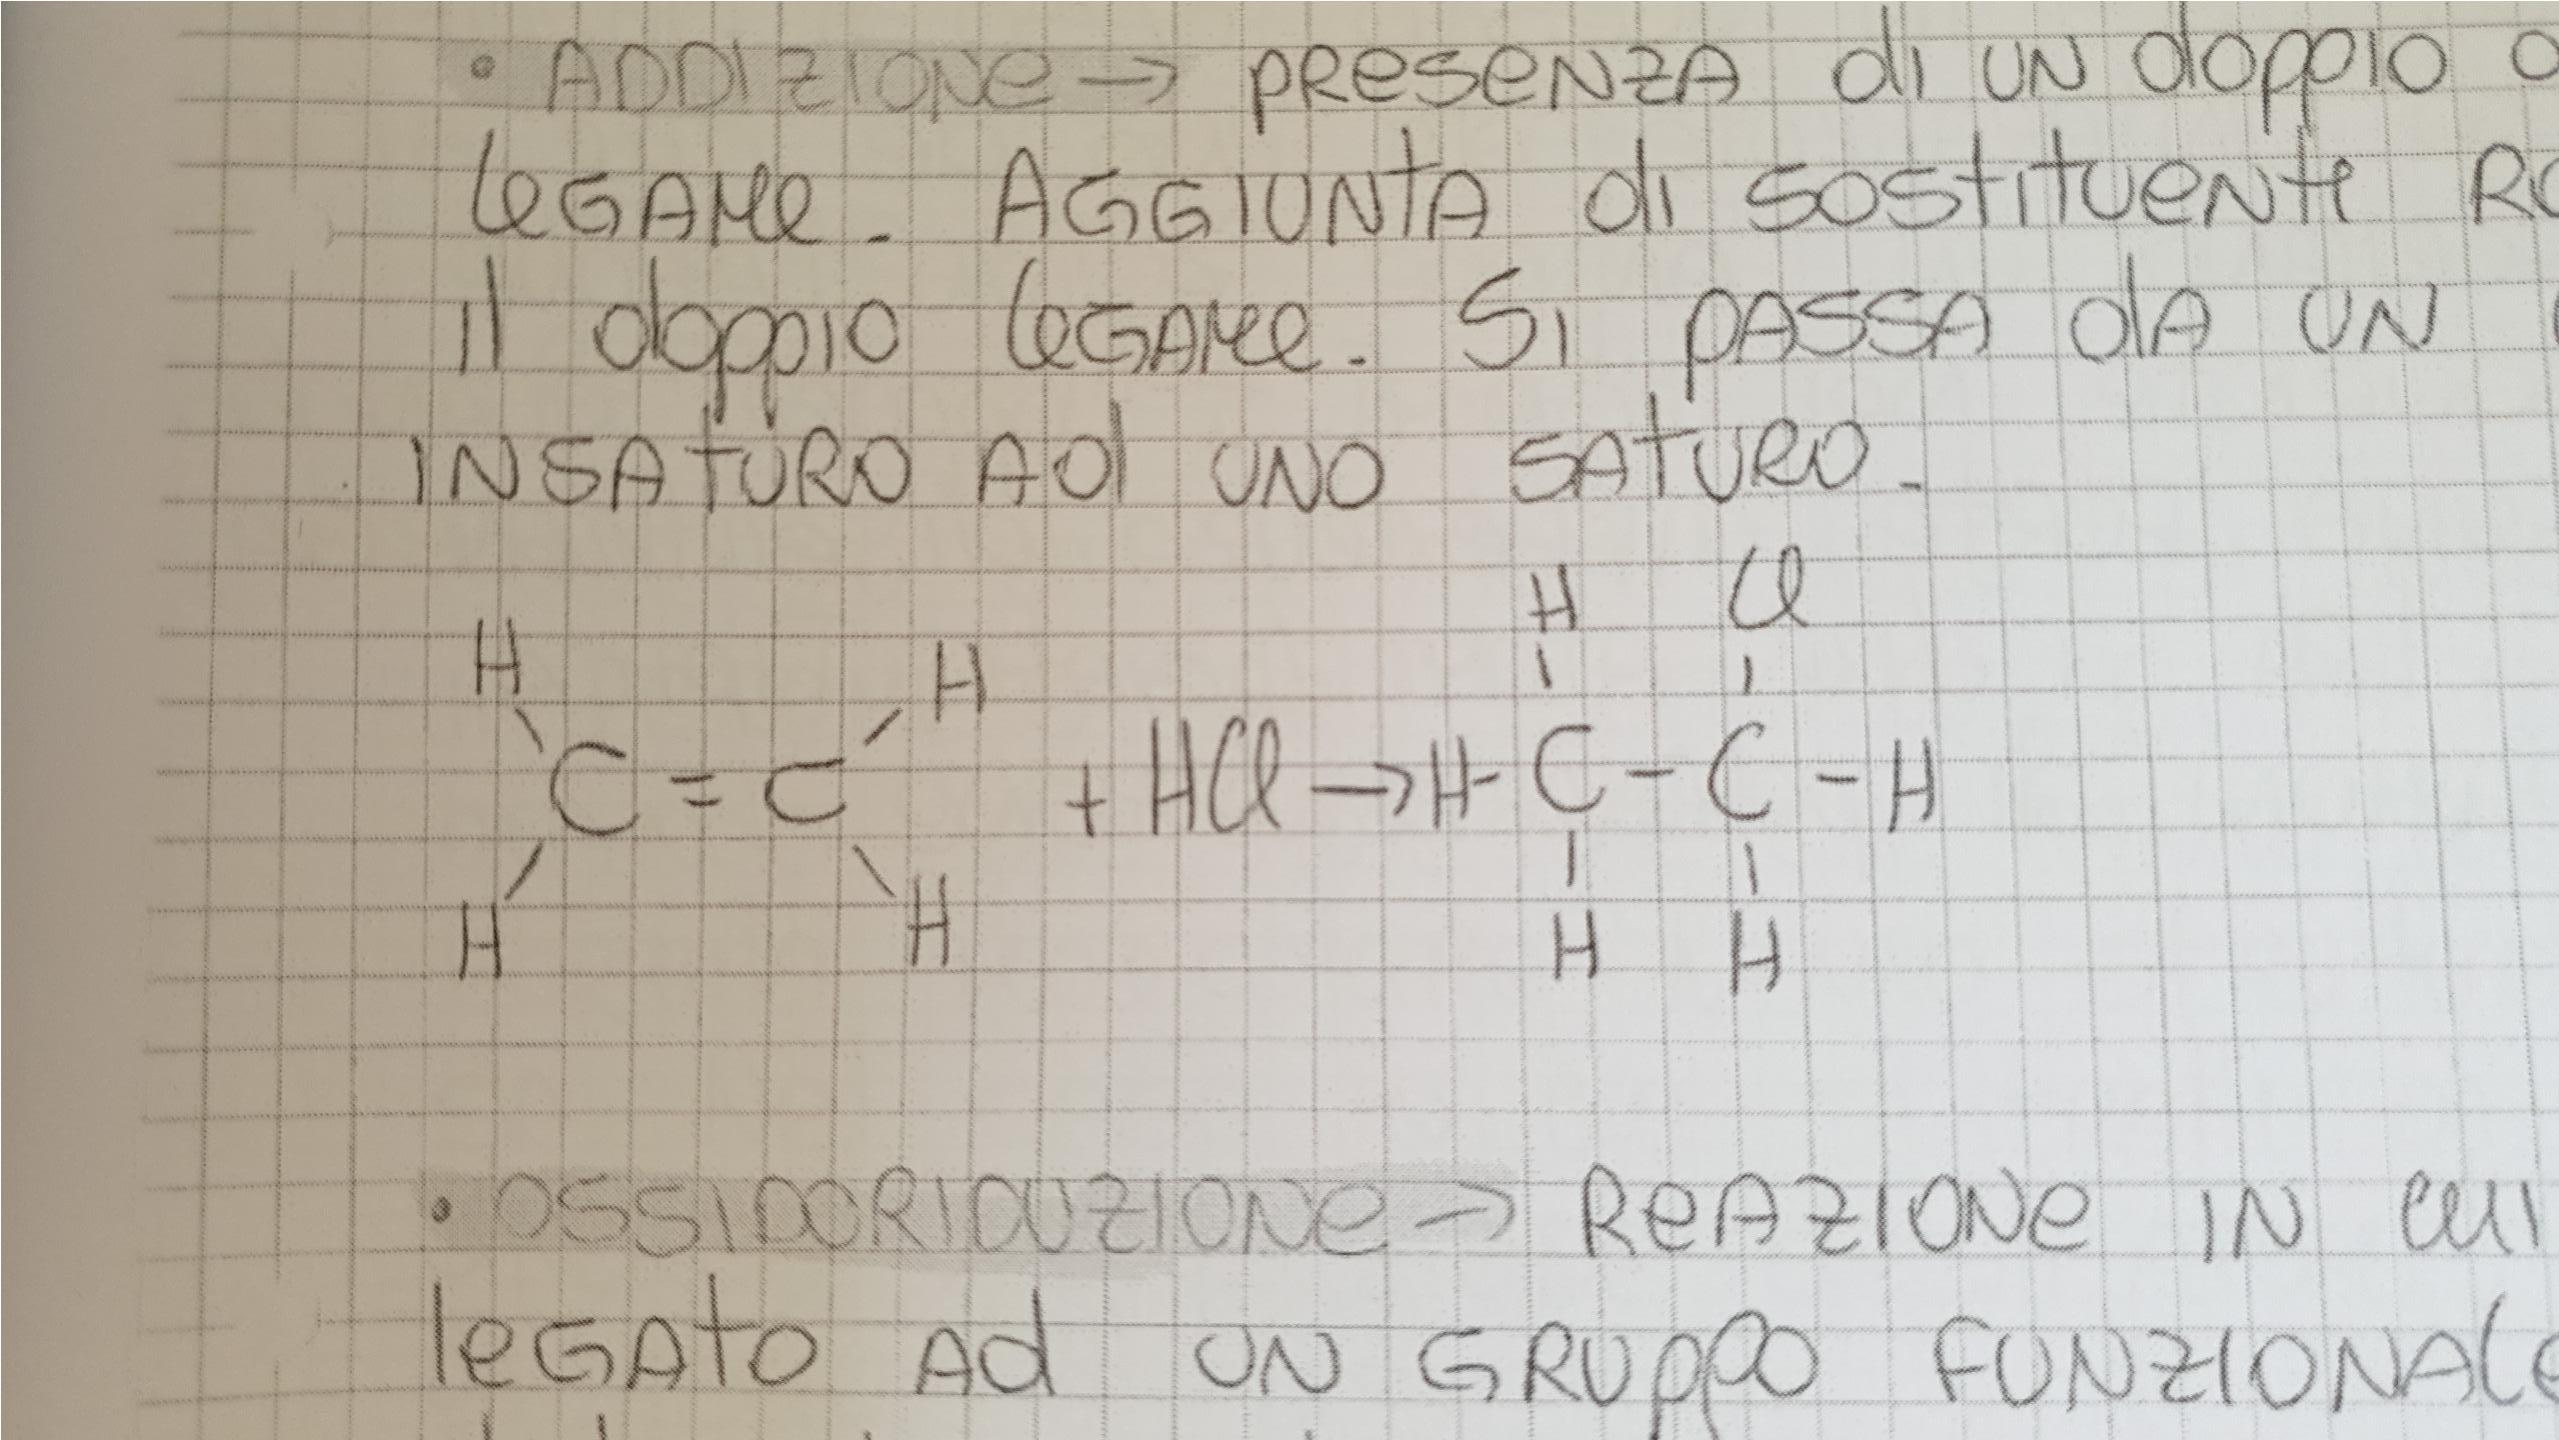 • ADDIZIONE → PRESENZA di UN doppio
LEGAME. AGGIUNTA di SOSTITUENTE
Il doppio LEGAME. SI PASSA dA UN
INSATURO Ad UNO SATURO.
H Cl
H H
C = C + HCl → H - C - C - H
H H H H
• OSSIDORIDUZIONE → REAZIONE IN CUI
LEGATO Ad UN GRUPPO FUNZIONALE